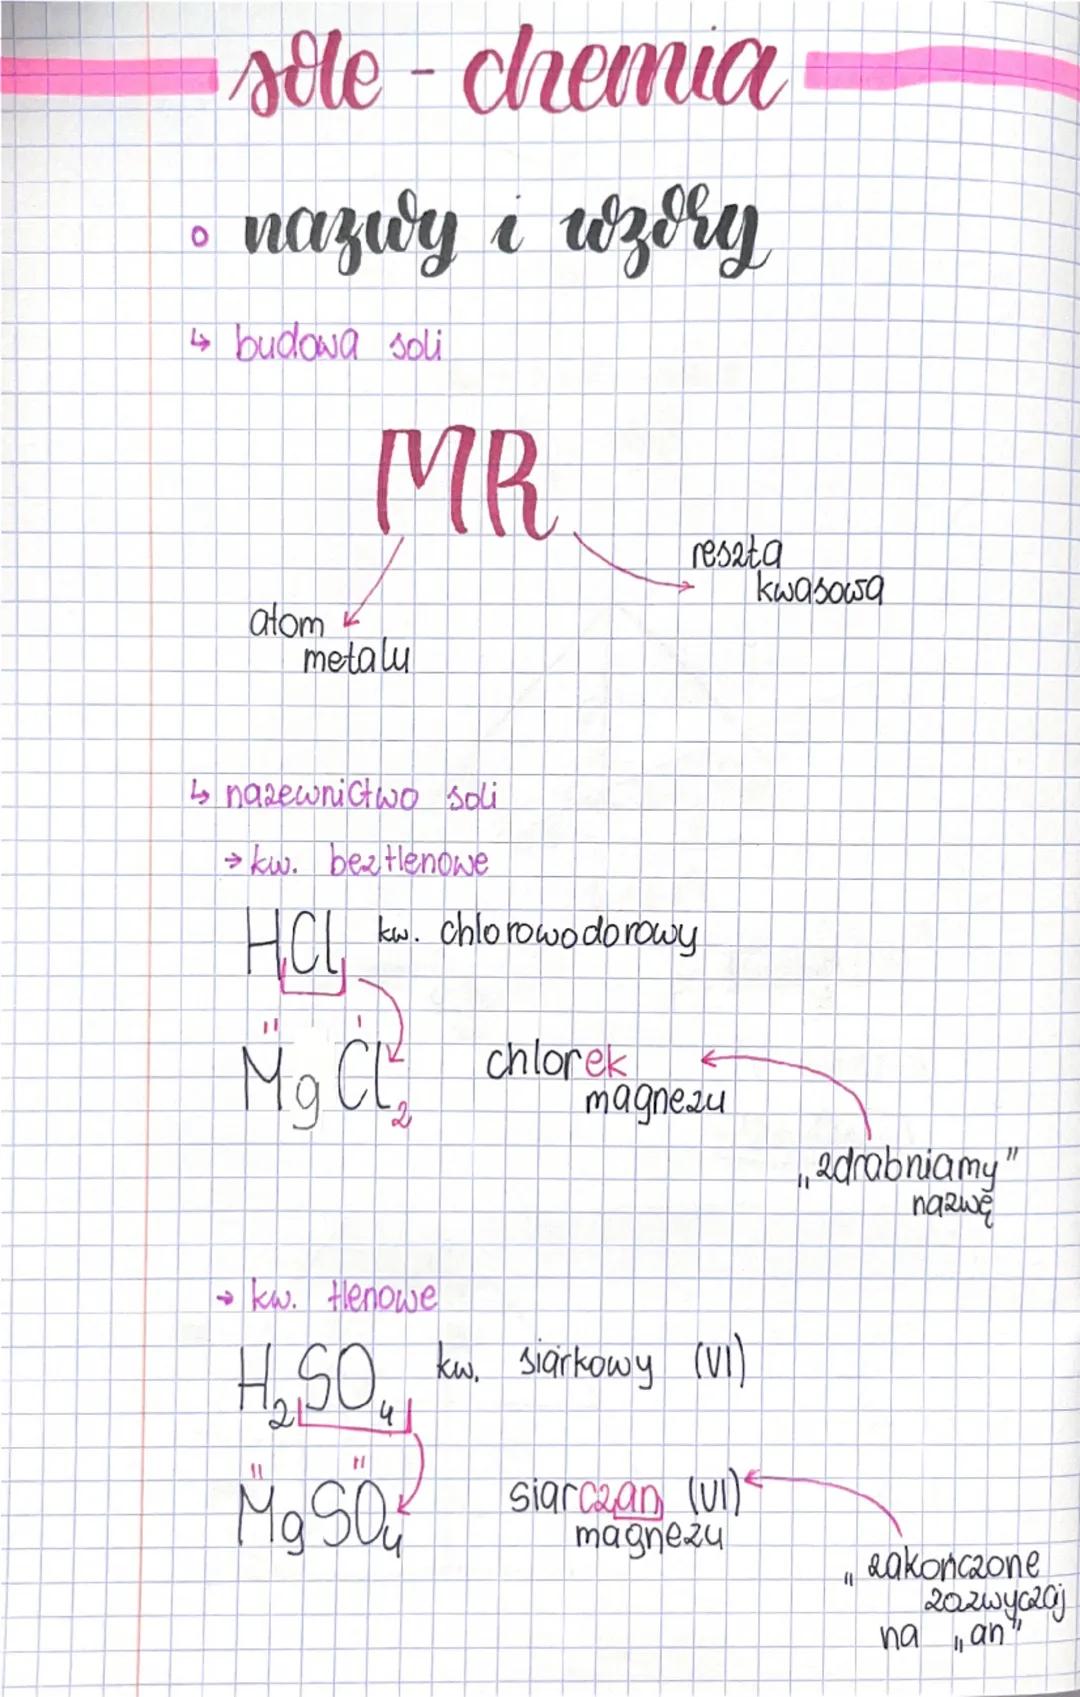 sole - chemia
nazwy i wzory
↳ budowa soli
MR
reszta
kwasowa
atom
metalu
↳ nazewnictwo soli
→ kw. beztlenowe
HCl kw. chlorowodorowy
II I
MgCl₂ chlorek
magnezu
„zdrabniamy"
nazwę
→ kw. tlenowe
H₂SO₄ kw. siarkowy (VI)
II II
MgSO₄ siarczan (VI)
magnezu
„zakończone
zazwyczaj
na „an"